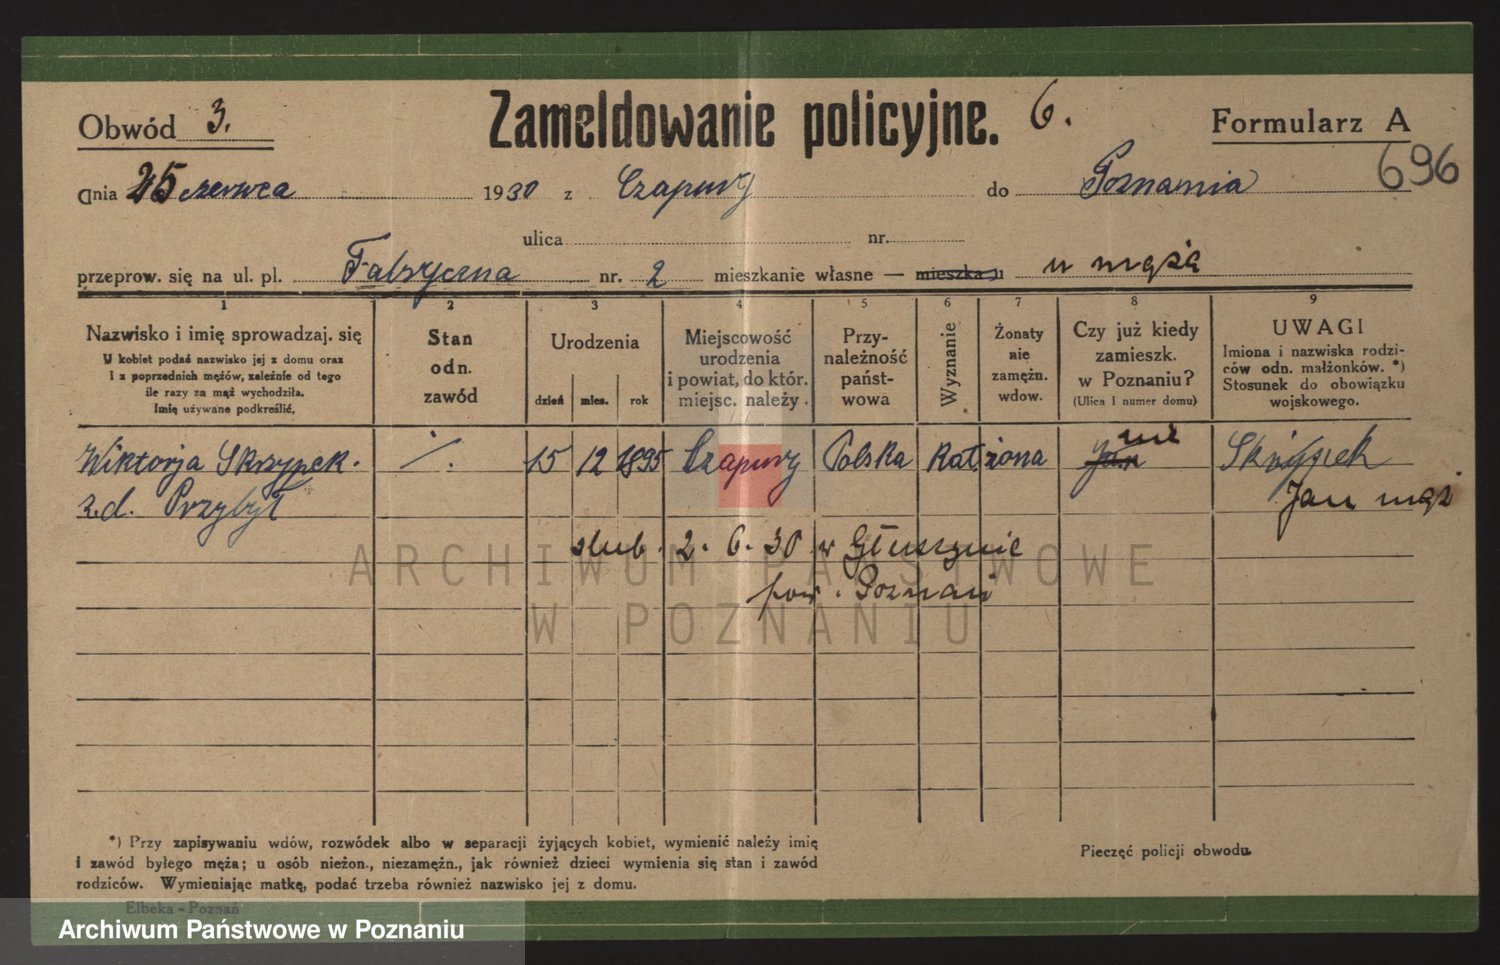 Obwód 3. Zameldowanie policyjne. 6. Formularz A
696
dnia 25 czerwca 1930 z Czapury do Poznania
ulica nr.
przeprow. się na ul. pl. Fabryczna nr. 2 mieszkanie własne — mieszka u u męża
1 2 3 4 5 6 7 8 9
Nazwisko i imię sprowadzaj. się
U kobiet podać nazwisko jej z domu oraz
i z poprzednich mężów, zależnie od tego
ile razy za mąż wychodziła.
Imię używane podkreślić.
Stan
odn.
zawód
Urodzenia
dzień mies. rok
Miejscowość
urodzenia
i powiat, do któr.
miejsc. należy.
Przy-
należność
państ-
wowa
Wyznanie
Żonaty
nie
zamężn.
wdow.
Czy już kiedy
zamieszk.
w Poznaniu?
(Ulica i numer domu)
UWAGI
Imiona i nazwiska rodzi-
ców odn. małżonków. *)
Stosunek do obowiązku
wojskowego.
Wiktorja Skrzypek. ·/. 15 12 1895 Czapury Polska kat. żona nie Skrzypek
z.d. Przybył Jan mąż
ślub. 2. 6. 30 w Głuszynie
pow. Poznań
ARCHIWUM PAŃSTWOWE
W POZNANIU
*) Przy zapisywaniu wdów, rozwódek albo w separacji żyjących kobiet, wymienić należy imię
i zawód byłego męża; u osób nieżon., niezamężn., jak również dzieci wymienia się stan i zawód
rodziców. Wymieniając matkę, podać trzeba również nazwisko jej z domu.
Pieczęć policji obwodu.
Elbeka - Poznań
Archiwum Państwowe w Poznaniu